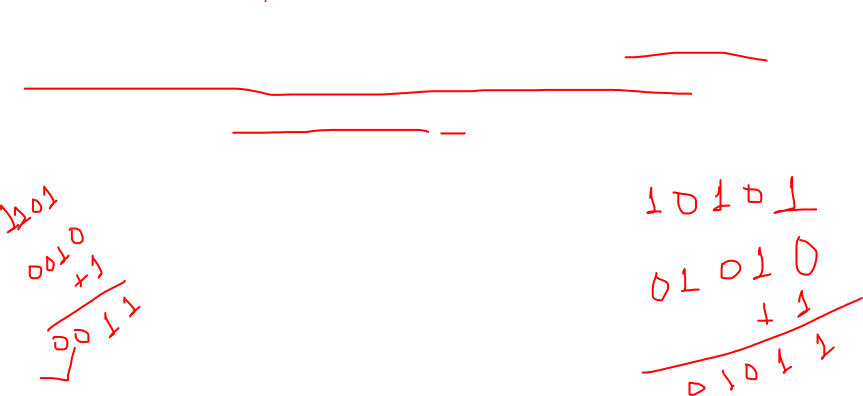 1101
0010
+1
0011
10101
01010
+ 1
01011